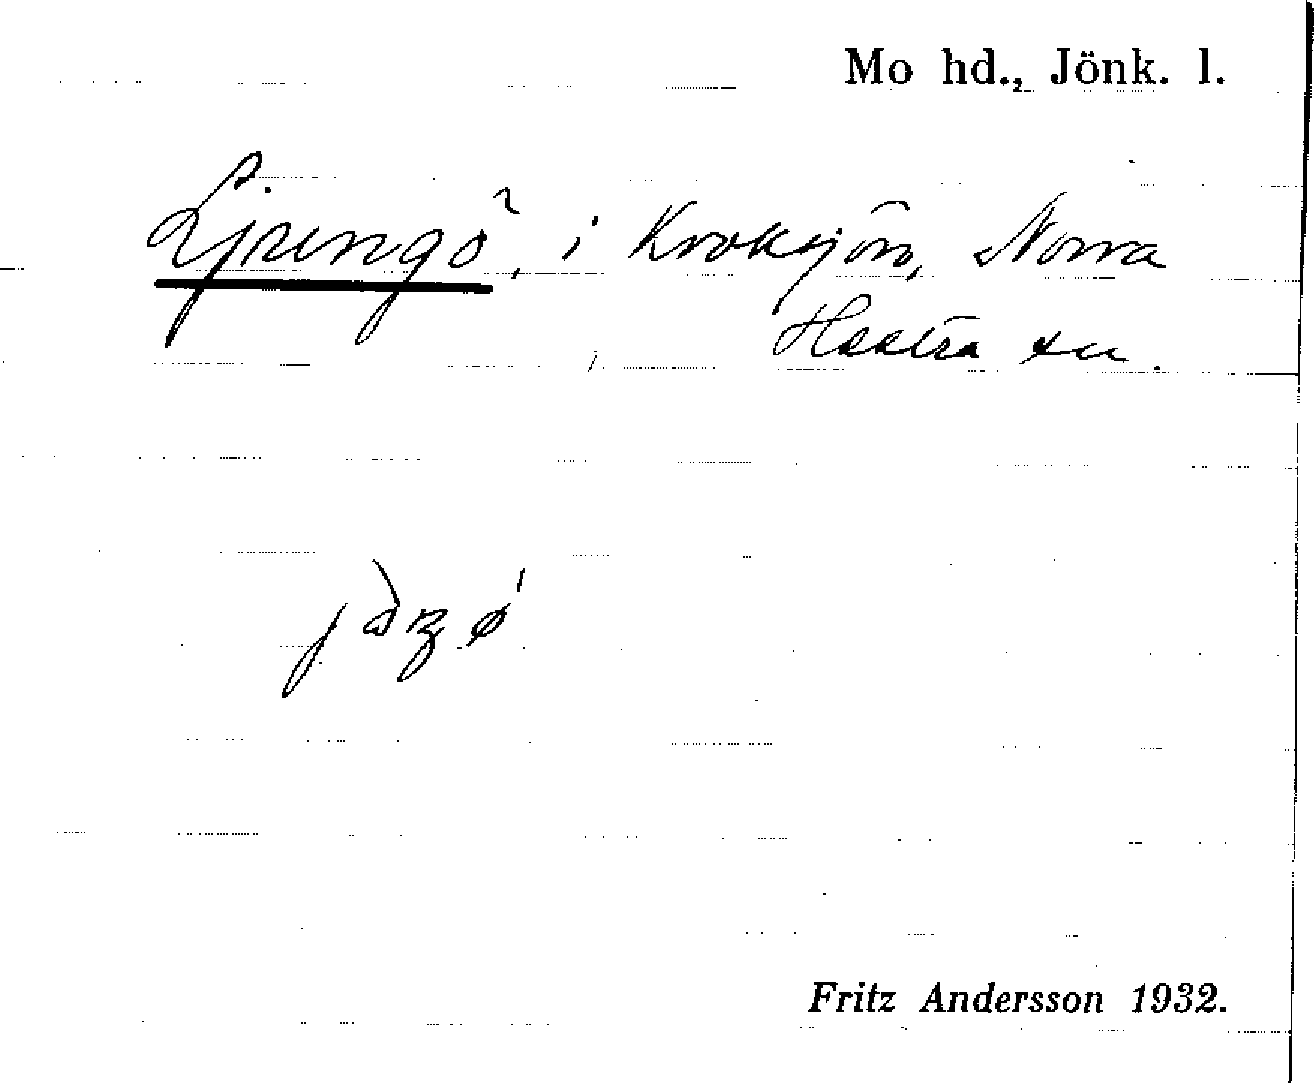 Mo hd., Jönk. l.
Ljungö, i Kroksjön, Norra
Hestra sn.
Fritz Andersson 1932.